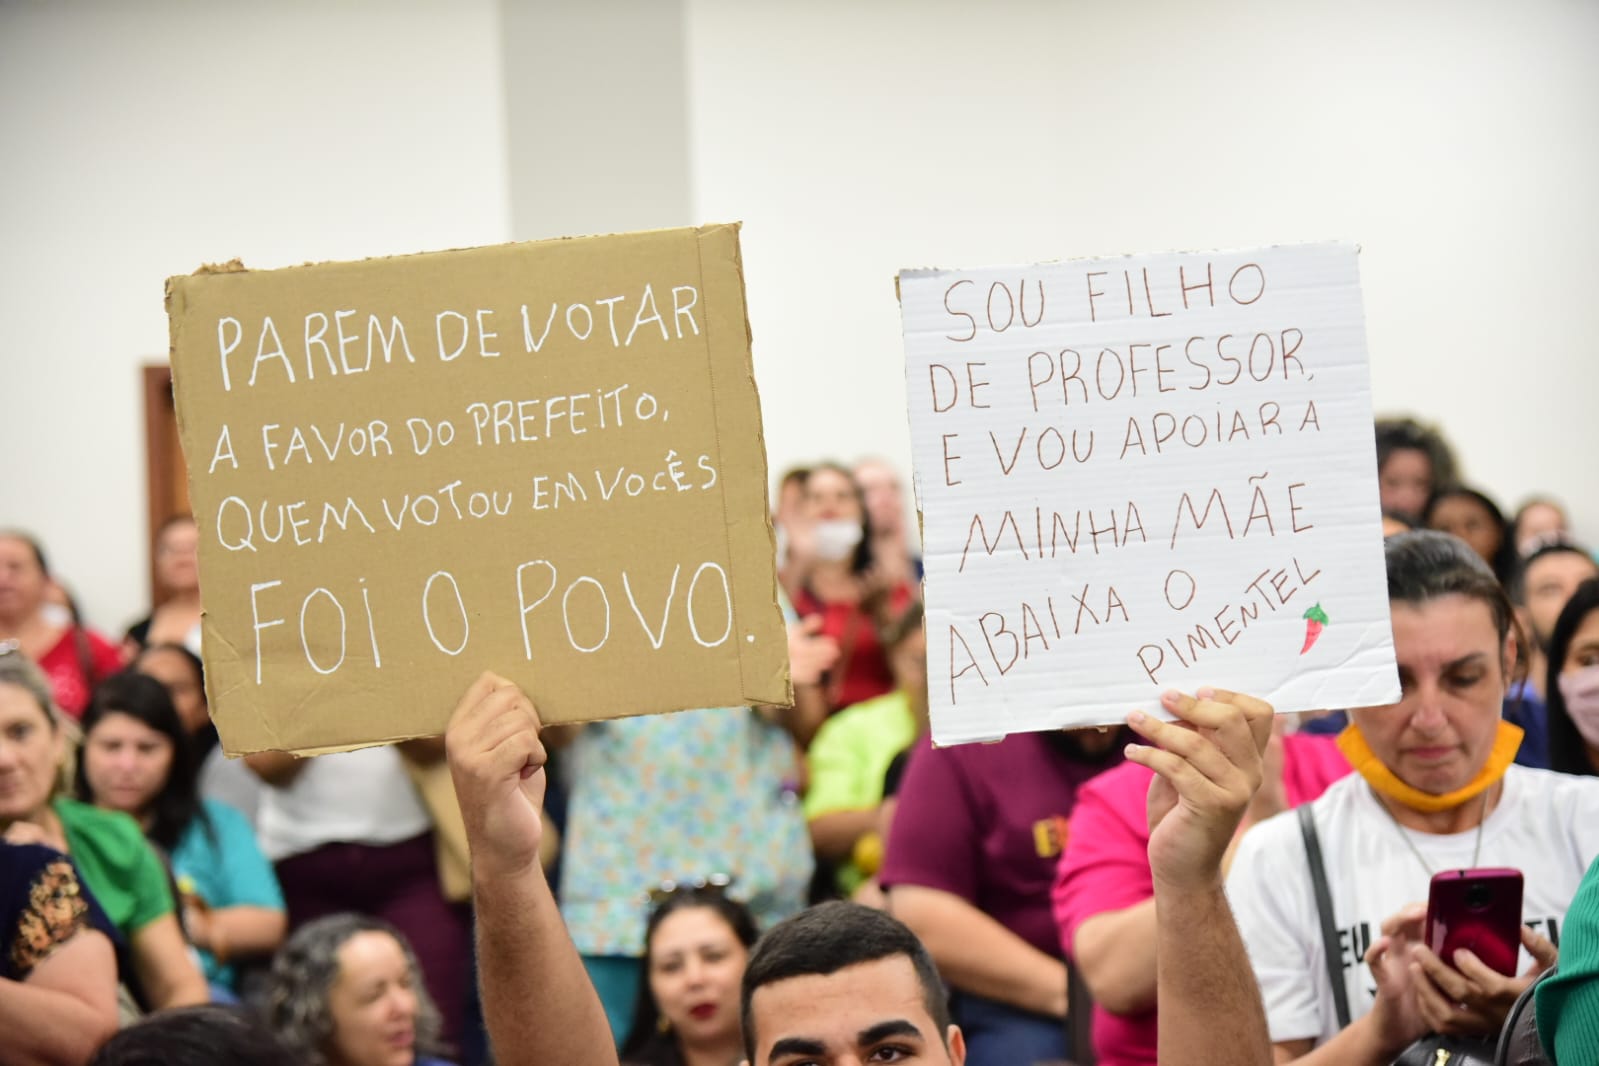 PAREM DE VOTAR
A FAVOR DO PREFEITO,
QUEM VOTOU EM VOCÊS
FOI O POVO.
SOU FILHO
DE PROFESSOR,
E VOU APOIAR A
MINHA MÃE
ABAIXA O
PIMENTEL
EU